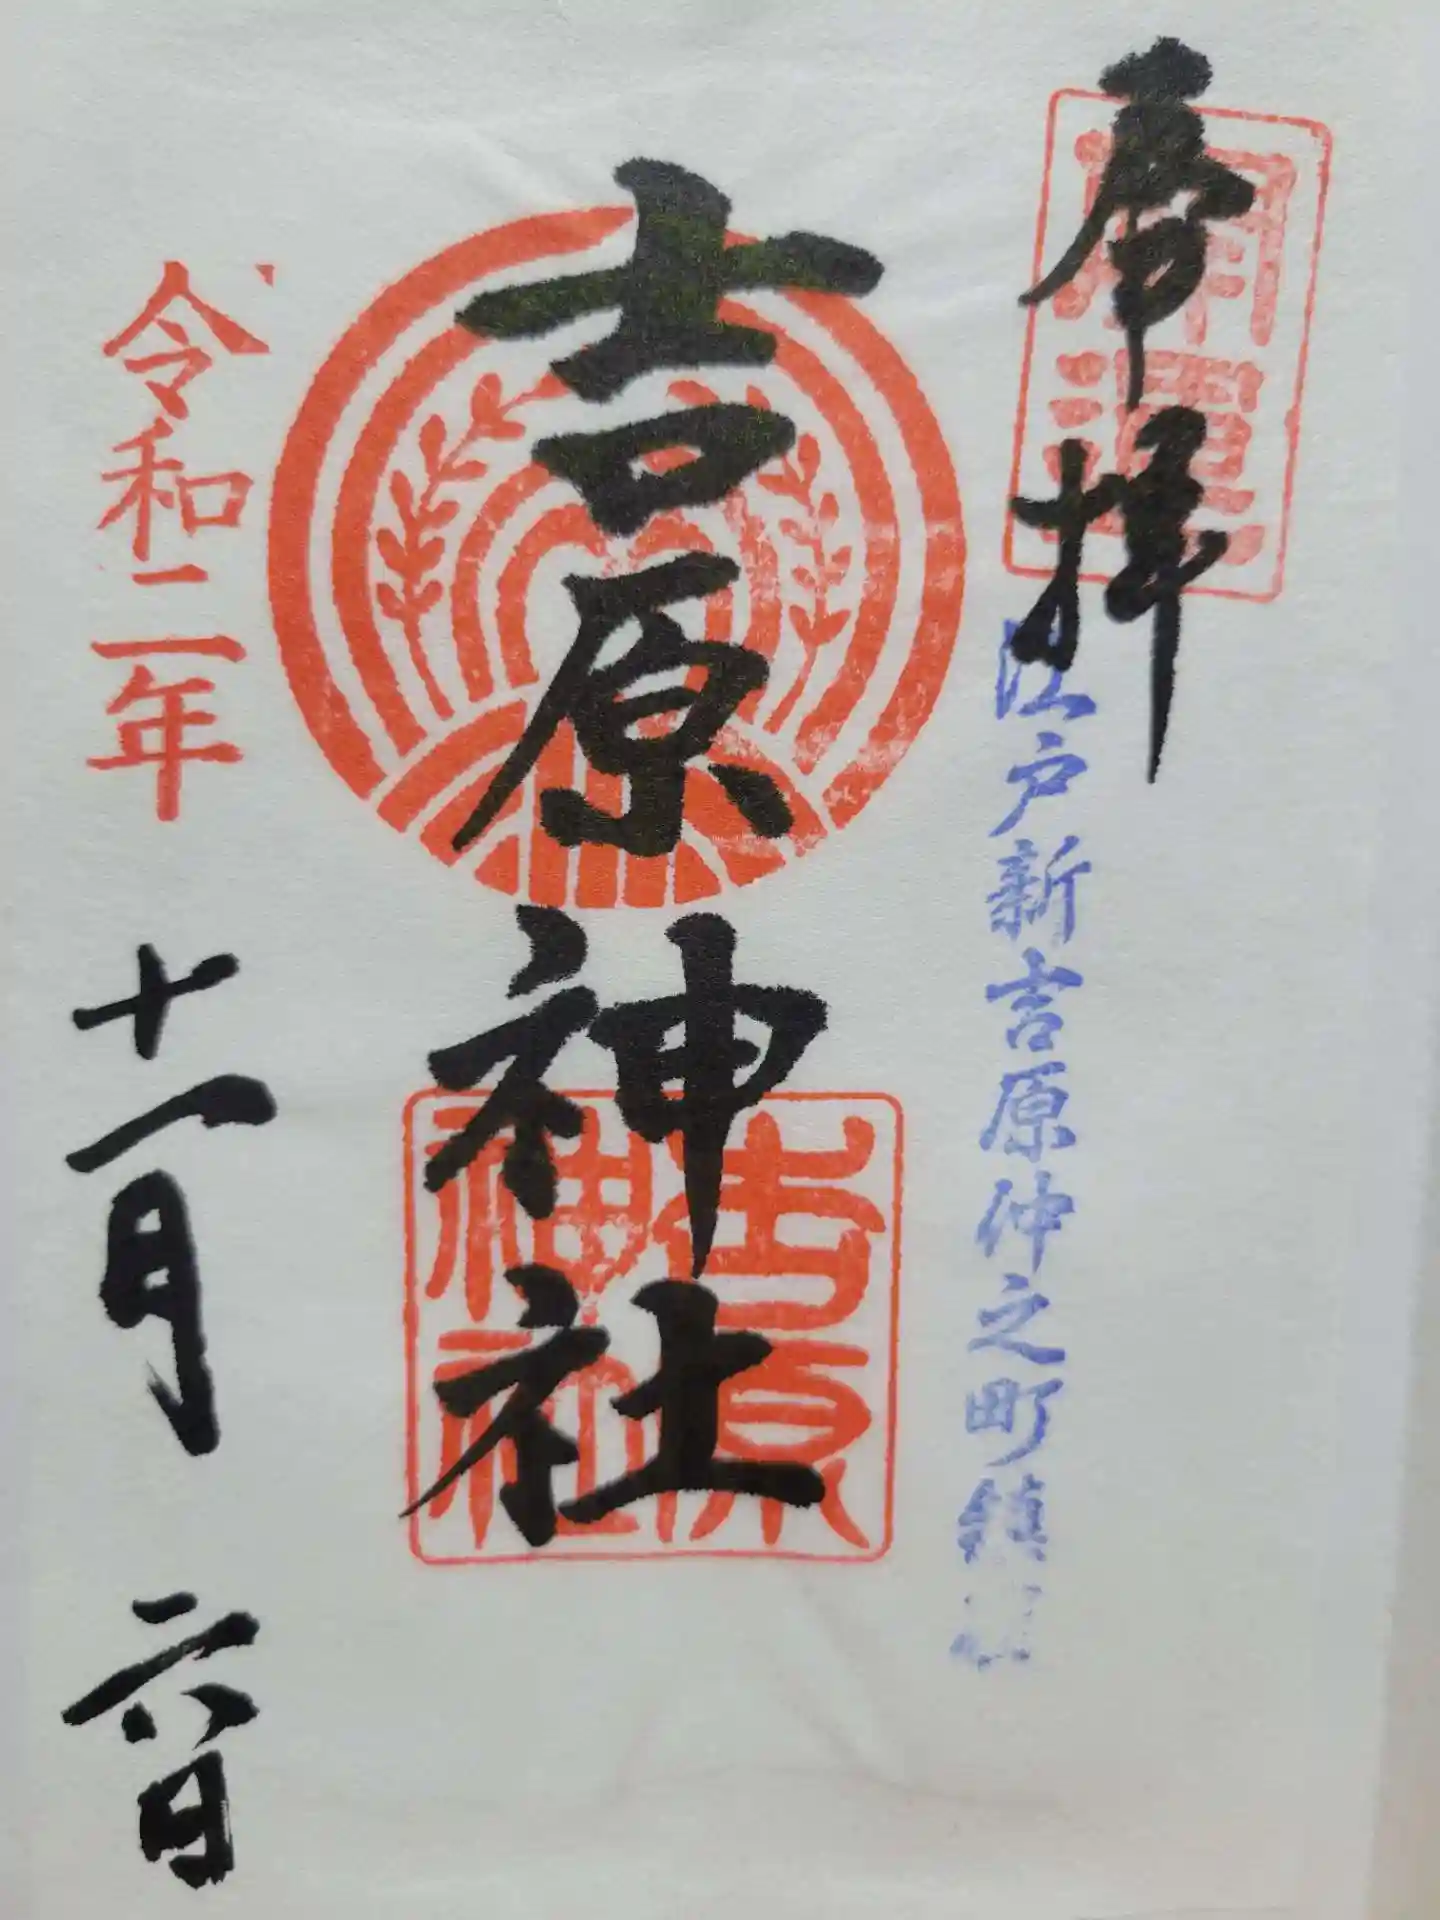 奉拝
開運
江戸新吉原仲之町鎮
吉原神社
吉原
神社
令和二年
十一月
六日